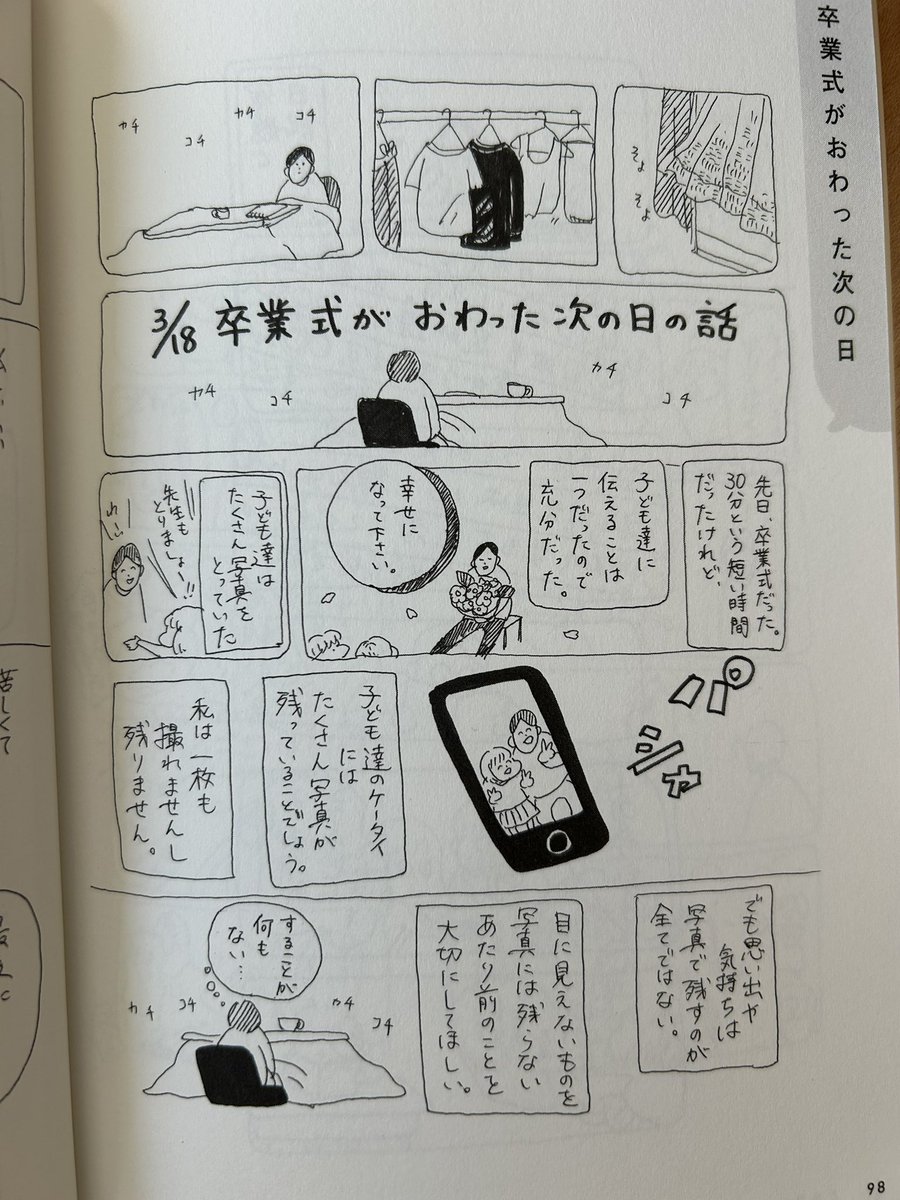 卒業式がおわった次の日
そよ
そよ
カチ
コチ
カチ
コチ
3/18 卒業式が おわった次の日の話
カチ
コチ
カチ
コチ
先日、卒業式だった。
30分という短い時間
だったけれど、
子ども達に
伝えることは
一つだったので
充分だった。
幸せに
なって下さい。
子ども達は
たくさん写真を
とっていた
先生も
とりましょー!!
わーい
パシャ
子ども達のケータイ
には
たくさん写真が
残っていることでしょう。
私は一枚も
撮れませんし
残りません。
でも思い出や
気持ちは
写真で残すのが
全てではない。
目に見えないものを
写真には残らない
あたり前のことを
大切にしてほしい。
することが
何も
ない…
カチ
コチ
カチ
コチ
98
苦しくて